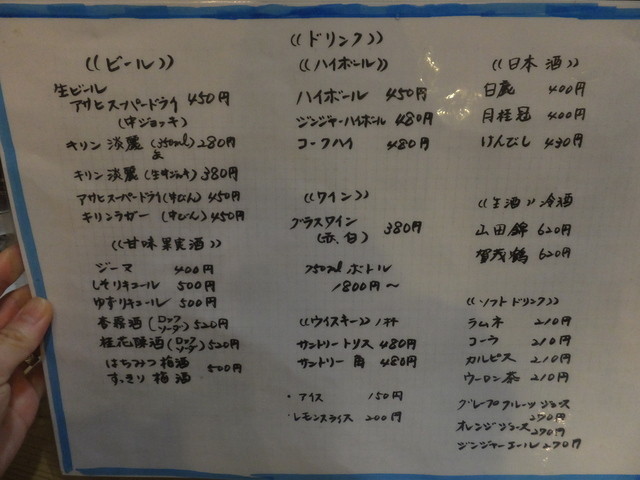 《ドリンク》
《ビール》
生ビール
アサヒスーパードライ 450円
(中ジョッキ)
キリン 淡麗 (350ml) 280円
缶
キリン 淡麗 (生中ジョッキ) 380円
アサヒスーパードライ (中びん) 450円
キリンラガー (中びん) 450円
《甘味果実酒》
ジーマ 400円
しそリキュール 500円
ゆずリキュール 500円
杏露酒 (ロック ソーダ) 520円
桂花陳酒 (ロック ソーダ) 520円
はちみつ梅酒
すっきり梅酒 500円
《ハイボール》
ハイボール 450円
ジンジャーハイボール 480円
コークハイ 480円
《ワイン》
グラスワイン
(赤、白) 380円
750ml ボトル
1800円〜
《ウイスキー》1杯
サントリートリス 480円
サントリー 角 480円
・アイス 150円
・レモンスライス 200円
《日本酒》
白鹿 400円
月桂冠 400円
けんびし 430円
《生酒》冷酒
山田錦 620円
賀茂鶴 620円
《ソフトドリンク》
ラムネ 210円
コーラ 210円
カルピス 210円
ウーロン茶 210円
グレープフルーツジュース
270円
オレンジジュース
270円
ジンジャーエール 270円